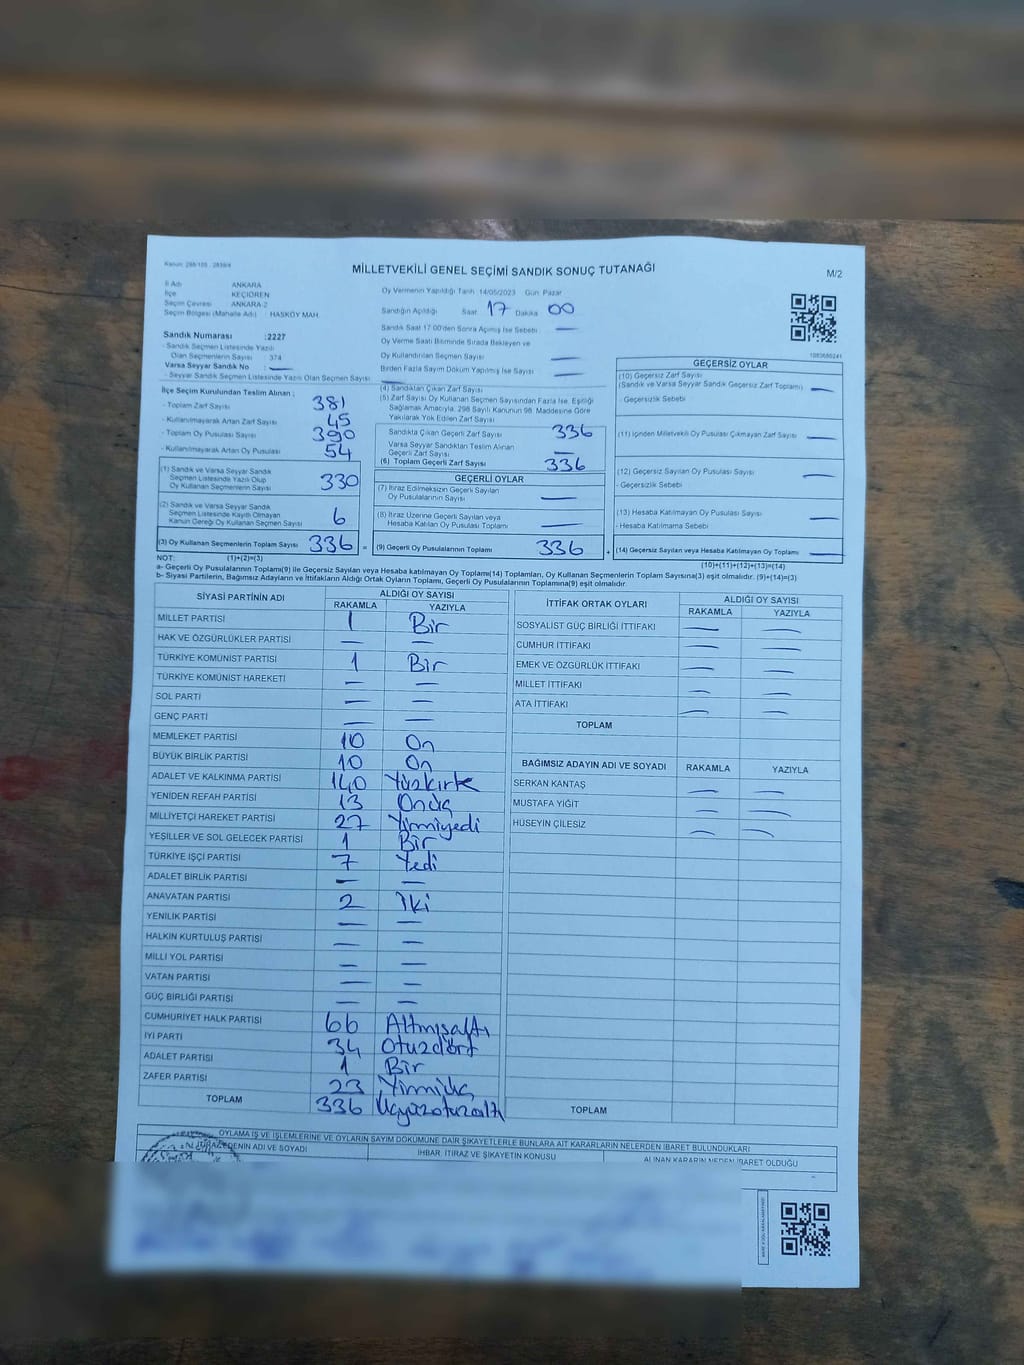 MİLLETVEKİLİ GENEL SEÇİMİ SANDIK SONUÇ TUTANAĞI
M/2
İl Adı ANKARA
İlçe KEÇİÖREN
Seçim Çevresi ANKARA-2
Seçim Bölgesi (Mahalle Adı) HASKÖY MAH.
Oy Vermenin Yapıldığı Tarih 14/05/2023 Gün: Pazar
Sandığın Açıldığı Saat 17 Dakika 00
Sandık Saat 17:00'den Sonra Açılmış İse Sebebi
Oy Verme Saati Bitiminde Sırada Bekleyen ve
Oy Kullandırılan Seçmen Sayısı
Birden Fazla Sayım Döküm Yapılmış İse Sayısı
Sandık Numarası :2227
- Sandık Seçmen Listesinde Yazılı
Olan Seçmenlerin Sayısı 374
Varsa Seyyar Sandık No
- Seyyar Sandık Seçmen Listesinde Yazılı Olan Seçmen Sayısı
İlçe Seçim Kurulundan Teslim Alınan ;
- Toplam Zarf Sayısı 381
- Kullanılmayarak Artan Zarf Sayısı 45
- Toplam Oy Pusulası Sayısı 390
- Kullanılmayarak Artan Oy Pusulası 54
(1) Sandık ve Varsa Seyyar Sandık
Seçmen Listesinde Yazılı Olup
Oy Kullanan Seçmenlerin Sayısı 330
(2) Sandık ve Varsa Seyyar Sandık
Seçmen Listesinde Kayıtlı Olmayan
Kanun Gereği Oy Kullanan Seçmen Sayısı 6
(3) Oy Kullanan Seçmenlerin Toplam Sayısı 336 =
(4) Sandıktan Çıkan Zarf Sayısı
(5) Zarf Sayısı Oy Kullanan Seçmen Sayısından Fazla İse, Eşitliği
Sağlamak Amacıyla, 298 Sayılı Kanunun 98. Maddesine Göre
Yakılarak Yok Edilen Zarf Sayısı
Sandıkta Çıkan Geçerli Zarf Sayısı 336
Varsa Seyyar Sandıktan Teslim Alınan
Geçerli Zarf Sayısı
(6) Toplam Geçerli Zarf Sayısı 336
GEÇERLİ OYLAR
(7) İtiraz Edilmeksizin Geçerli Sayılan
Oy Pusulalarının Sayısı
(8) İtiraz Üzerine Geçerli Sayılan veya
Hesaba Katılan Oy Pusulası Toplamı
(9) Geçerli Oy Pusulalarının Toplamı 336 +
GEÇERSİZ OYLAR
(10) Geçersiz Zarf Sayısı
(Sandık ve Varsa Seyyar Sandık Geçersiz Zarf Toplamı)
- Geçersizlik Sebebi
(11) İçinden Milletvekili Oy Pusulası Çıkmayan Zarf Sayısı
(12) Geçersiz Sayılan Oy Pusulası Sayısı
- Geçersizlik Sebebi
(13) Hesaba Katılmayan Oy Pusulası Sayısı
- Hesaba Katılmama Sebebi
(14) Geçersiz Sayılan veya Hesaba Katılmayan Oy Toplamı
NOT: (1)+(2)=(3)
(10)+(11)+(12)+(13)=(14)
a- Geçerli Oy Pusulaları Toplamı(9) ile Geçersiz Sayılan veya Hesaba katılmayan Oy Toplamı(14) Toplamları, Oy Kullanan Seçmenlerin Toplam Sayısına(3) eşit olmalıdır. (9)+(14)=(3)
b- Siyasi Partilerin, Bağımsız Adayların ve İttifakların Aldığı Ortak Oyların Toplamı, Geçerli Oy Pusulalarının Toplamına(9) eşit olmalıdır.
SİYASİ PARTİNİN ADI ALDIĞI OY SAYISI
RAKAMLA YAZIYLA
MİLLET PARTİSİ 1 Bir
HAK VE ÖZGÜRLÜKLER PARTİSİ
TÜRKİYE KOMÜNİST PARTİSİ 1 Bir
TÜRKİYE KOMÜNİST HAREKETİ
SOL PARTİ
GENÇ PARTİ
MEMLEKET PARTİSİ 10 On
BÜYÜK BİRLİK PARTİSİ 10 On
ADALET VE KALKINMA PARTİSİ 140 Yüzkırk
YENİDEN REFAH PARTİSİ 13 Onüç
MİLLİYETÇİ HAREKET PARTİSİ 27 Yirmiyedi
YEŞİLLER VE SOL GELECEK PARTİSİ 1 Bir
TÜRKİYE İŞÇİ PARTİSİ 7 Yedi
ADALET BİRLİK PARTİSİ
ANAVATAN PARTİSİ 2 İki
YENİLİK PARTİSİ
HALKIN KURTULUŞ PARTİSİ
MİLLİ YOL PARTİSİ
VATAN PARTİSİ
GÜÇ BİRLİĞİ PARTİSİ
CUMHURİYET HALK PARTİSİ 66 Altmışaltı
İYİ PARTİ 34 Otuzdört
ADALET PARTİSİ 1 Bir
ZAFER PARTİSİ 23 Yirmiüç
TOPLAM 336 Üçyüzotuzaltı
İTTİFAK ORTAK OYLARI ALDIĞI OY SAYISI
RAKAMLA YAZIYLA
SOSYALİST GÜÇ BİRLİĞİ İTTİFAKI
CUMHUR İTTİFAKI
EMEK VE ÖZGÜRLÜK İTTİFAKI
MİLLET İTTİFAKI
ATA İTTİFAKI
TOPLAM
BAĞIMSIZ ADAYIN ADI VE SOYADI RAKAMLA YAZIYLA
SERKAN KANTAŞ
MUSTAFA YİĞİT
HÜSEYİN ÇİLESİZ
TOPLAM
OYLAMA İŞ VE İŞLEMLERİNE VE OYLARIN SAYIM DÖKÜMÜNE DAİR ŞİKAYETLERLE BUNLARA AİT KARARLARIN NELERDEN İBARET BULUNDUKLARI
ADI VE SOYADI İHBAR, İTİRAZ VE ŞİKAYETİN KONUSU ALINAN KARARIN NEDEN İBARET OLDUĞU